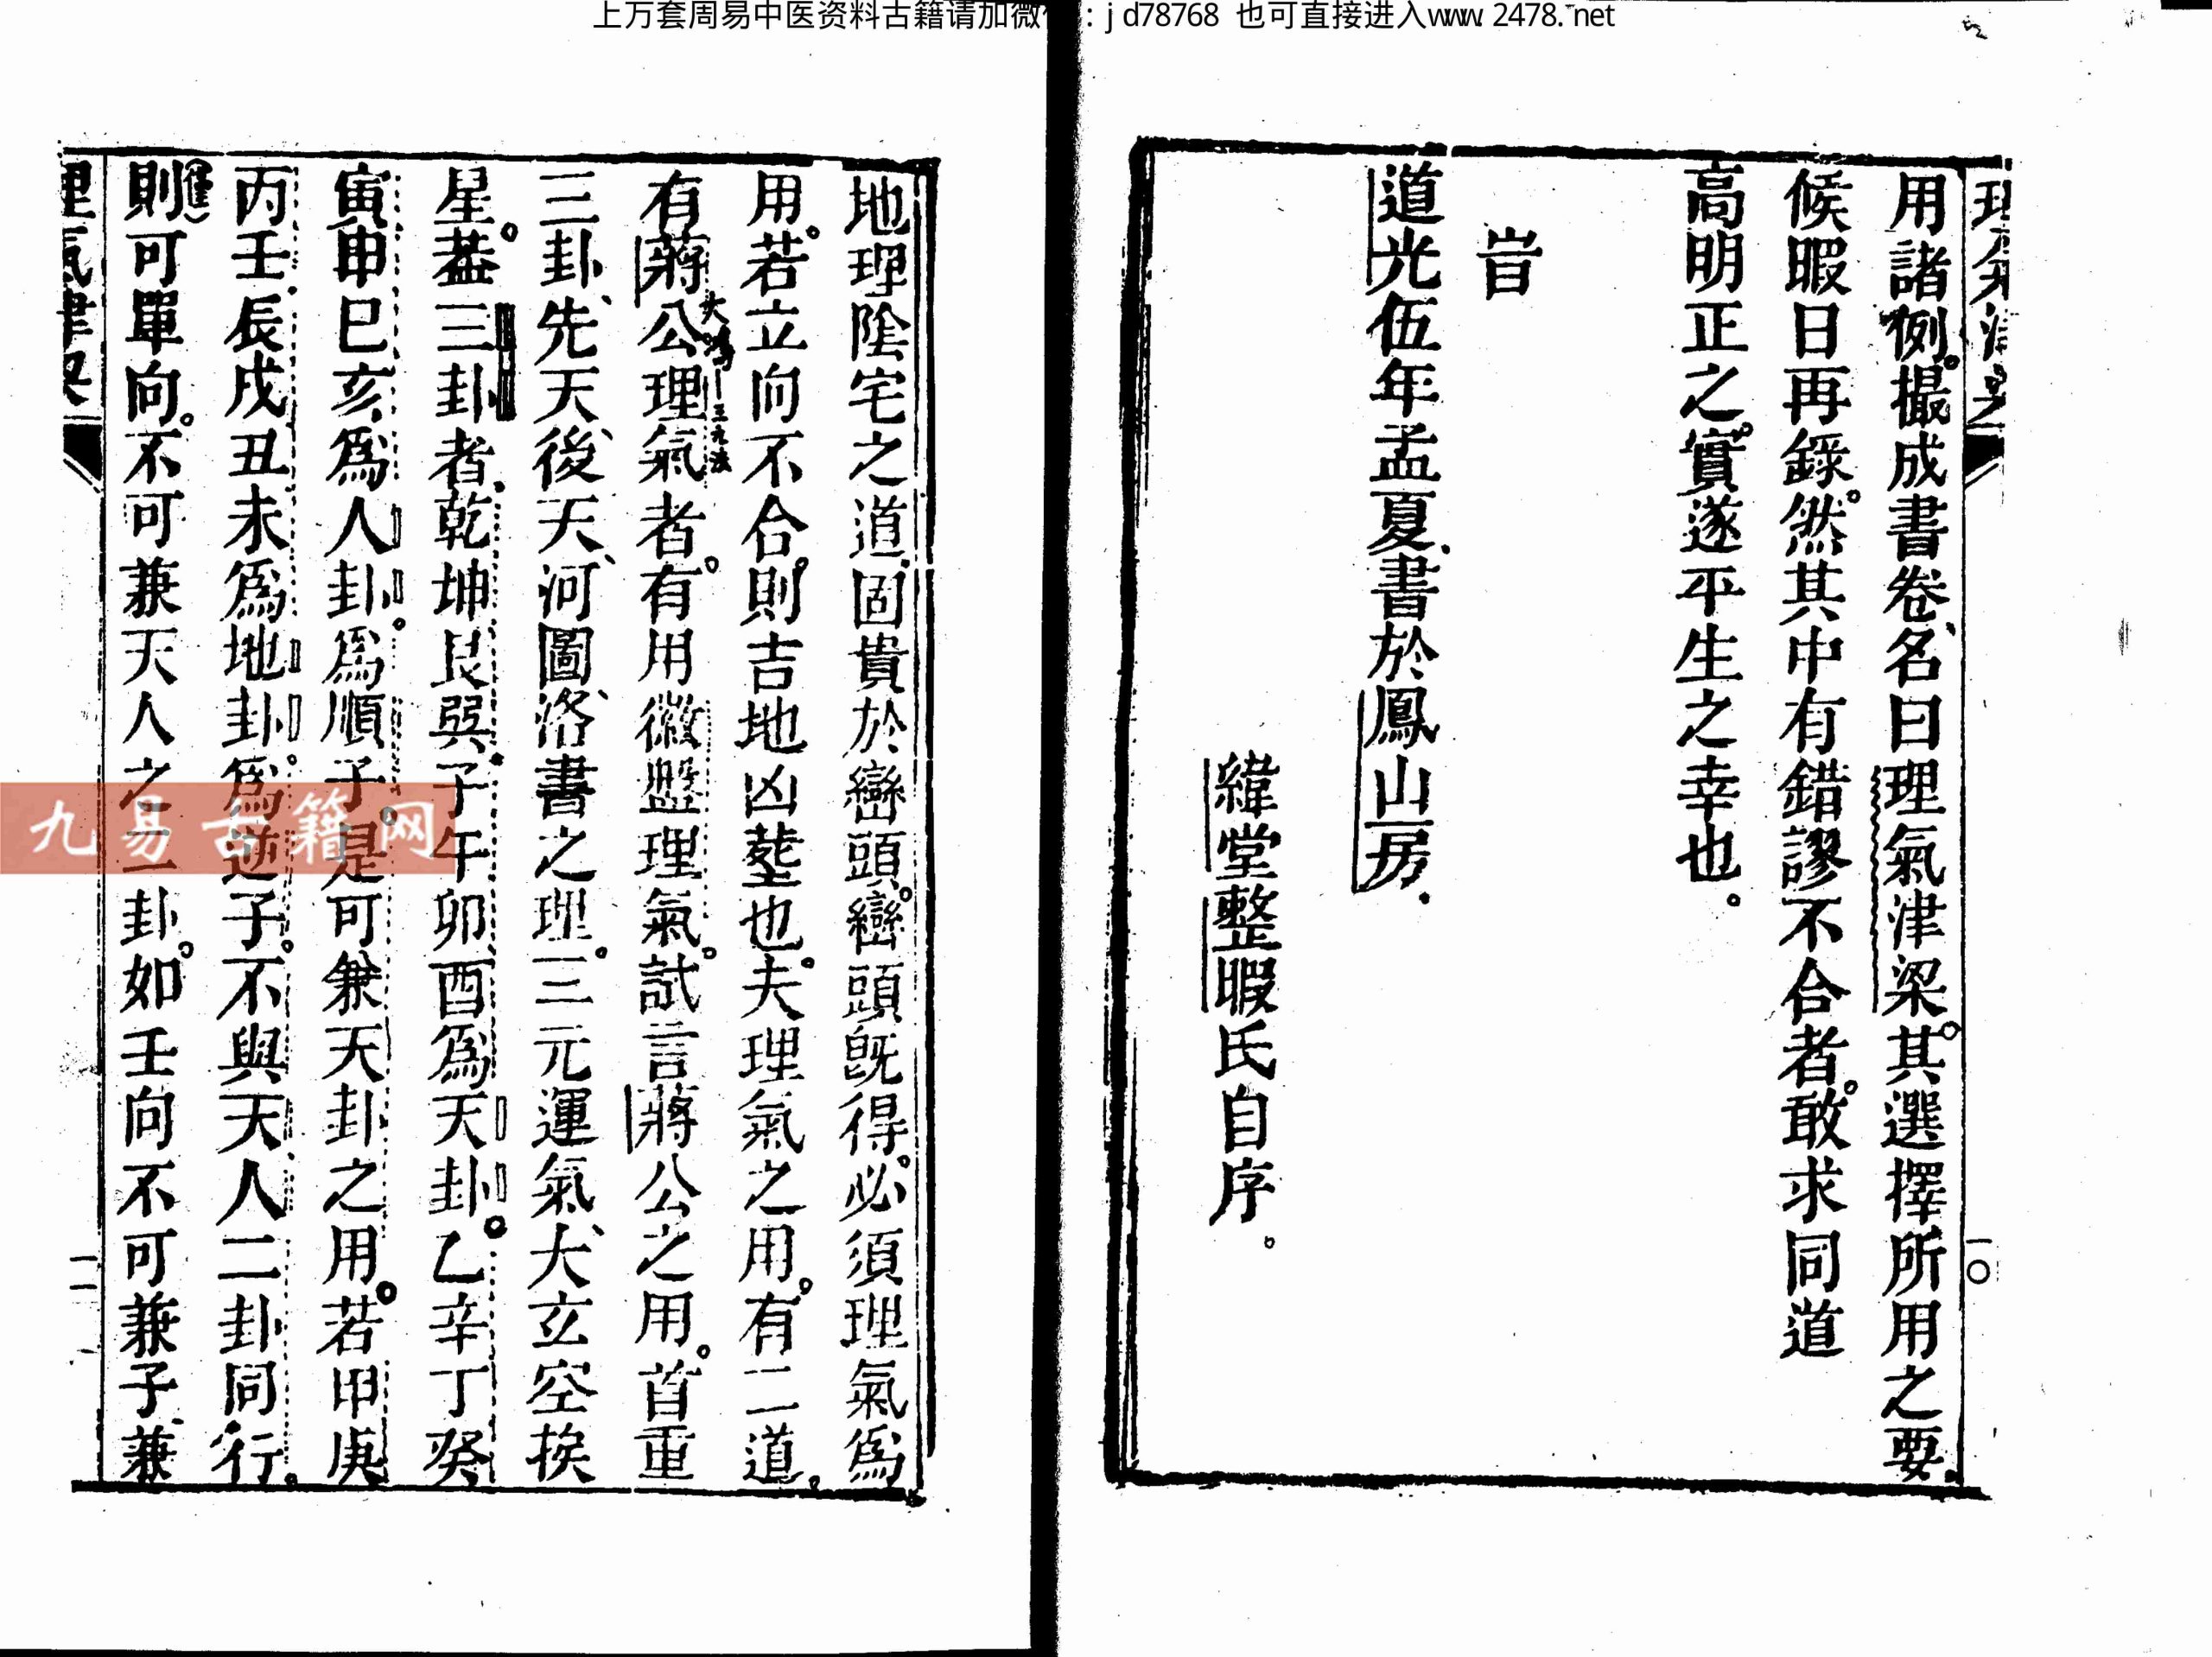 上万套周易中医资料古籍请加微 : jd78768 也可直接进入www.2478.net
用諸例。撮成書卷、名曰理氣津梁。其選擇所用之要。
候暇日再錄。然其中有錯謬不合者。敢求同道
高明正之。實遂平生之幸也。
旹
道光伍年孟夏、書於鳳山房。
緯堂整暇氏自序。
一〇
地理陰宅之道、固貴於巒頭。巒頭既得。必須理氣爲
用。若立向不合。則吉地凶塟也。夫理氣之用。有二道。
有蔣公理氣者。有用徽盤理氣。試言蔣公之用。首重
三元法
三卦、先天、後天、河圖、洛書之理。三元運氣、大玄空挨
星。葢三卦者、乾坤艮巽、子午卯酉爲天卦。乙辛丁癸
寅申巳亥爲人卦。爲順子。是可兼天卦之用。若甲庚
丙壬辰戌丑未爲地卦。爲逆子。不與天人二卦同行。
則可單向。不可兼天人之二卦。如壬向不可兼子、兼
理氣津梁
一一
九易古籍网